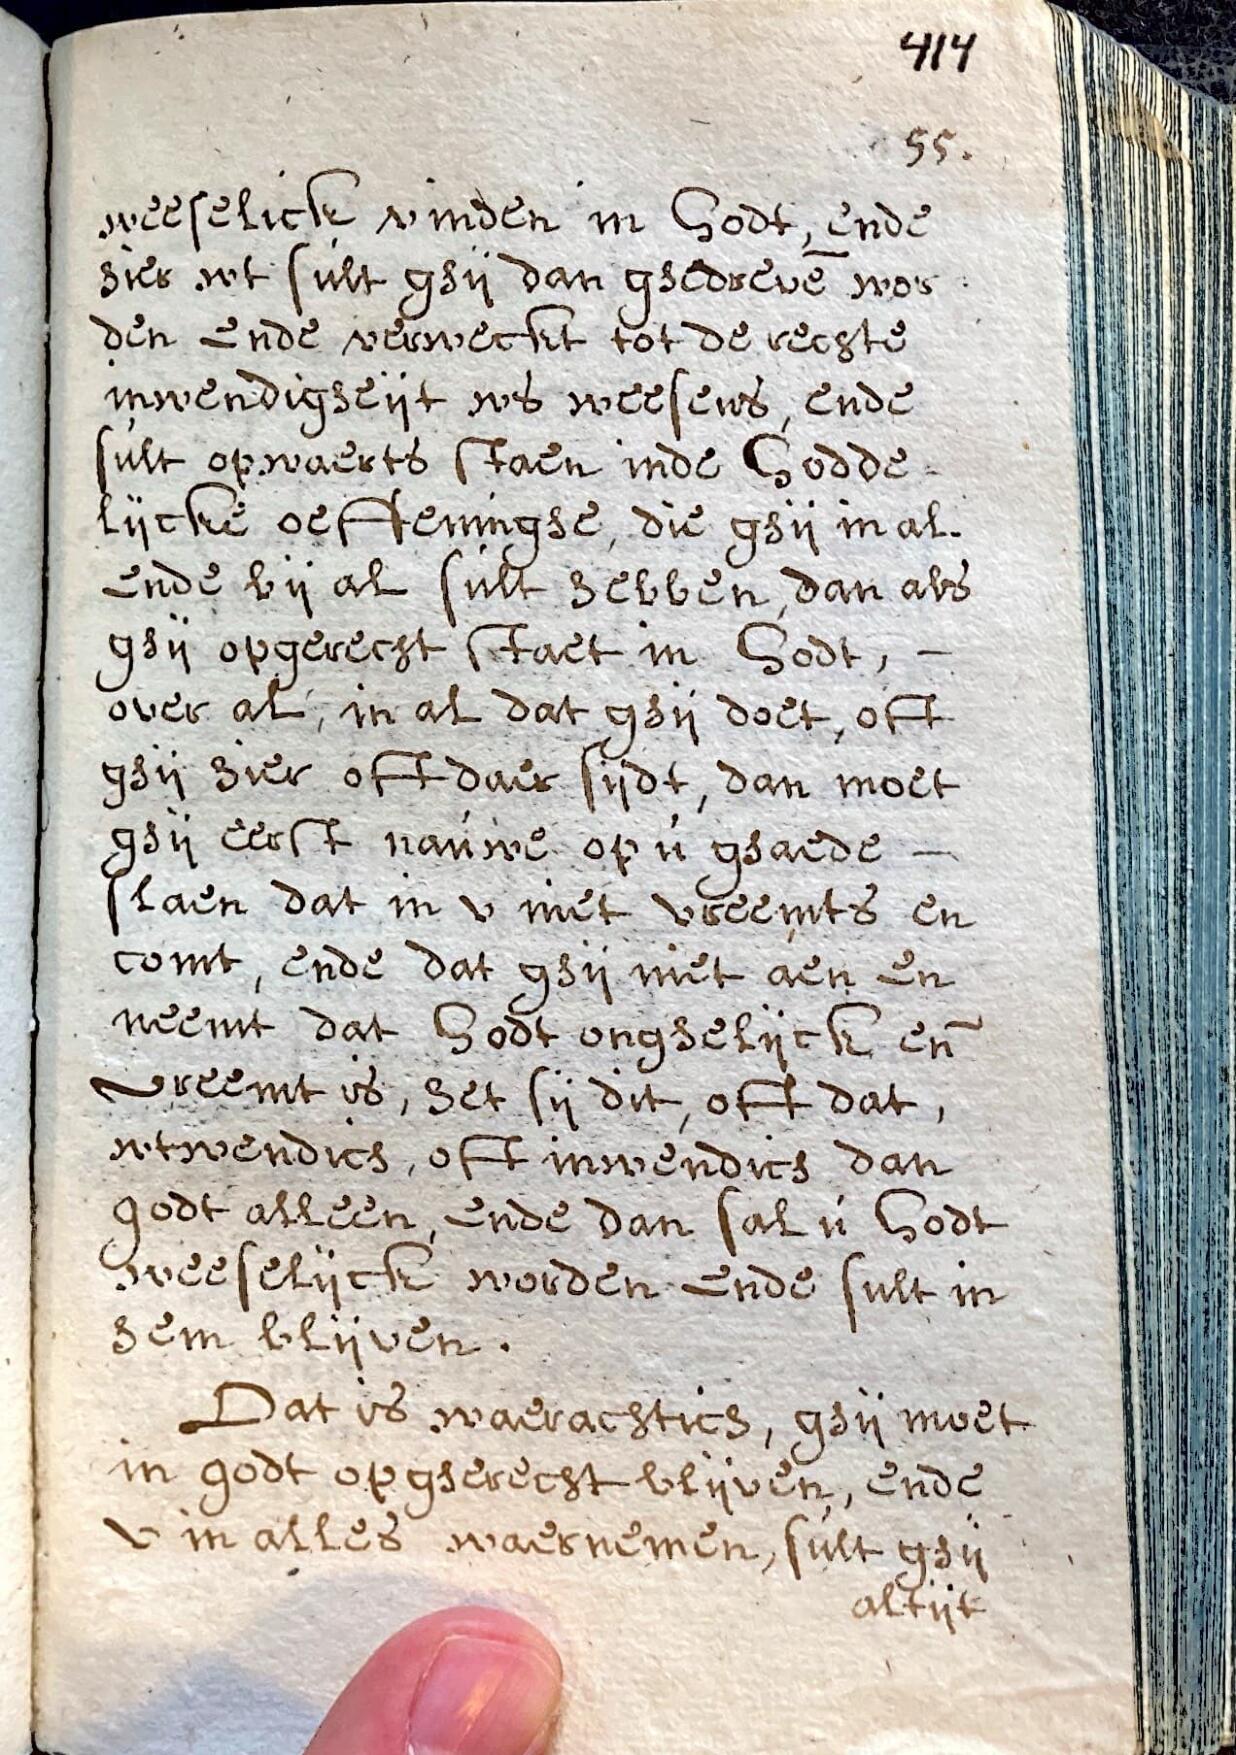 414
55.
weeselick vinden in Godt, ende
hier wt sult ghij dan ghedrevē wor
den ende verweckt tot de rechte
inwendigheijt ws weesens, ende
sult opwaerts staen inde Godde-
lijcke oeffeninghe, die ghij in al.
ende bij al sult hebben, dan als
ghij opgerecht staet in Godt, –
over al, in al dat ghij doet, oft
ghij hier oft daer sijdt, dan moet
ghij eerst nauwe op u ghaede –
slaen dat in v niet vreemts en
comt, ende dat ghij niet aen en
neemt dat Godt onghelijck en̄
vreemt is, het sij dit, oft dat,
wtwendich, oft inwendich dan
godt alleen, ende dan sal u Godt
weeselijck worden ende sult in
hem blijven.
Dat is waerachtich, ghij moet
in godt opgherecht blijven, ende
v in alles waernemen, sult ghij
altijt